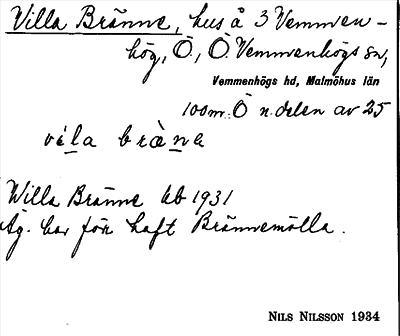 Villa Bränne, hus å 3 Vemmen-
hög, Ö., Ö. Vemmenhögs sn,
Vemmenhögs hd, Malmöhus län
100 m. Ö n. delen av 25
vi̍la bränə
Willa Bränne kb 1931
Äg. har förr haft Brännemölla.
NILS NILSSON 1934